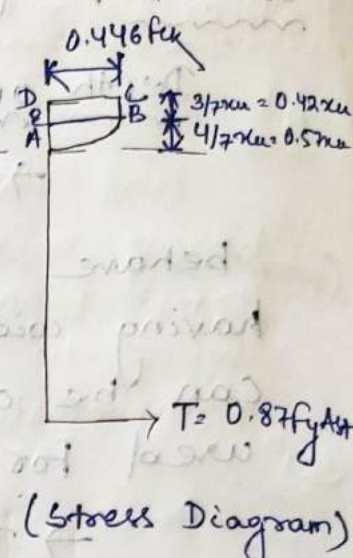 0.446fck
D C 3/7xu = 0.42xu
R B
A 4/7xu = 0.57xu
T = 0.87fyAst
(Stress Diagram)